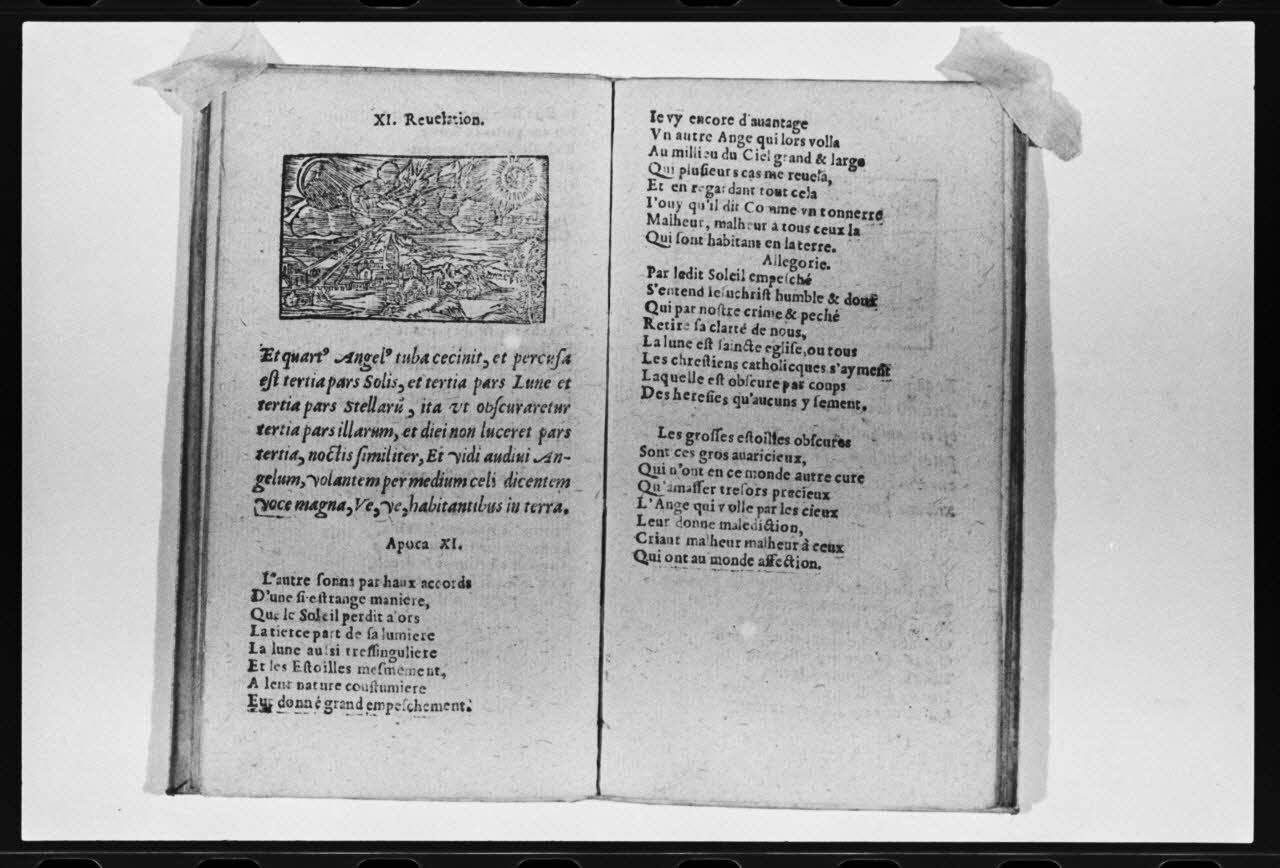 XI. Reuelation.
Et quartꝰ Angelꝰ tuba cecinit, et percusa
est tertia pars Solis, et tertia pars Lune et
tertia pars Stellarũ, ita vt obſcuraretur
tertia pars illarum, et diei non luceret pars
tertia, noctis ſimiliter, Et vidi audiui An-
gelum, volantem per medium celi dicentem
voce magna, Ve, ve, habitantibus in terra.
Apoca XI.
L'autre ſonna par haux accords
D'vne ſi eſtrange maniere,
Que le Soleil perdit alors
La tierce part de ſa lumiere
La lune auſsi treſſinguliere
Et les Eſtoilles meſmement,
A leur nature couſtumiere
Eut donné grand empeſchement.
Ie vy encore d'auantage
Vn autre Ange qui lors volla
Au millieu du Ciel grand & large
Qui pluſieurs cas me reuela,
Et en regardant tout cela
I'ouy qu'il dit Comme vn tonnerre
Malheur, malheur a tous ceux la
Qui ſont habitans en la terre.
Allegorie.
Par ledit Soleil empeſché
S'entend Ieſuchriſt humble & doux
Qui par noſtre crime & peché
Retire ſa clarté de nous,
La lune eſt ſaincte egliſe, ou tous
Les chreſtiens catholicques s'ayment
Laquelle eſt obſcure par coups
Des hereſies qu'aucuns y ſement.
Les groſſes eſtoilles obſcures
Sont ces gros auaricieux,
Qui n'ont en ce monde autre cure
Qu'amaſſer treſors precieux
L'Ange qui volle par les cieux
Leur donne malediction,
Criant malheur malheur à ceux
Qui ont au monde affection.